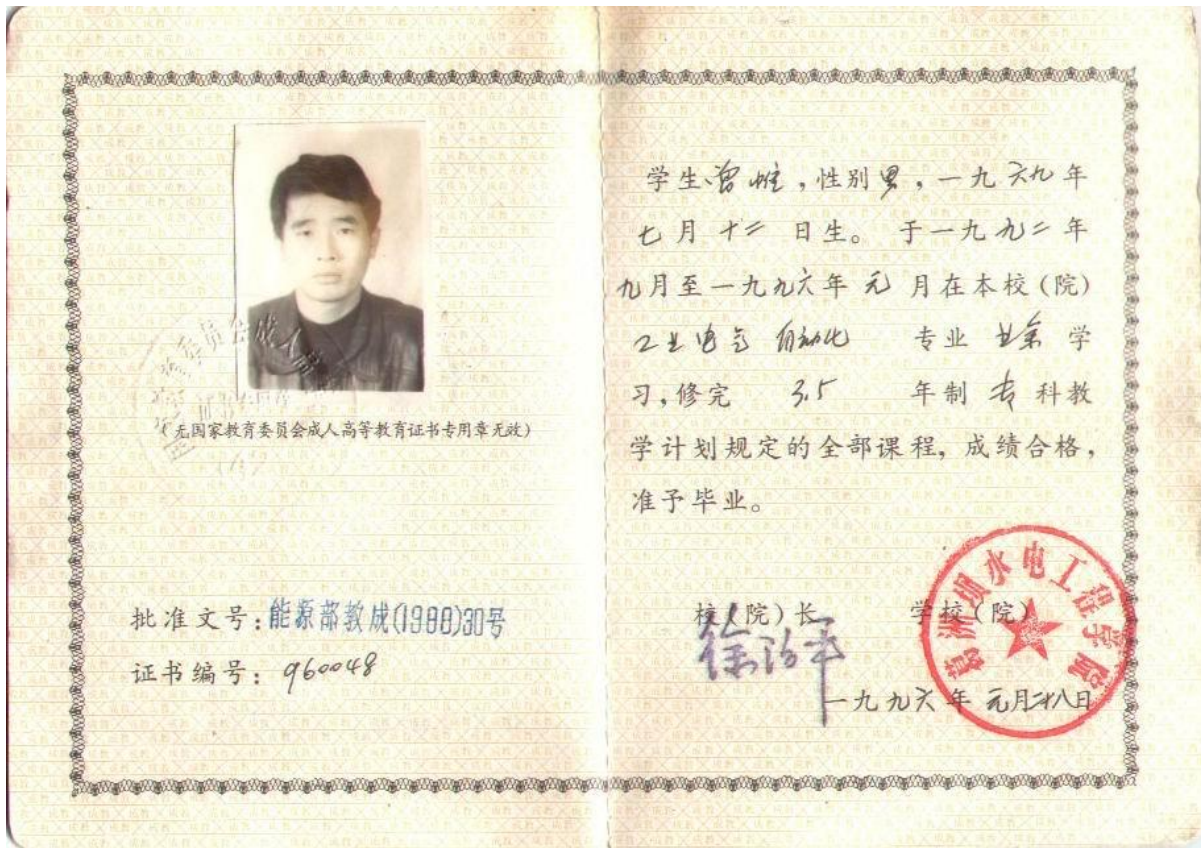 (无国家教育委员会成人高等教育证书专用章无效)
批准文号:能源部教成(1988)30号
证书编号:960048
学生曾,性别男,一九六九年
七月十二日生。于一九九二年
九月至一九九六年元月在本校(院)
工业电气自动化 专业业余学
习,修完 3.5 年制专科教
学计划规定的全部课程,成绩合格,
准予毕业。
校(院)长 学校(院)
徐治平
葛洲坝水电工程学院
一九九六年元月廿八日